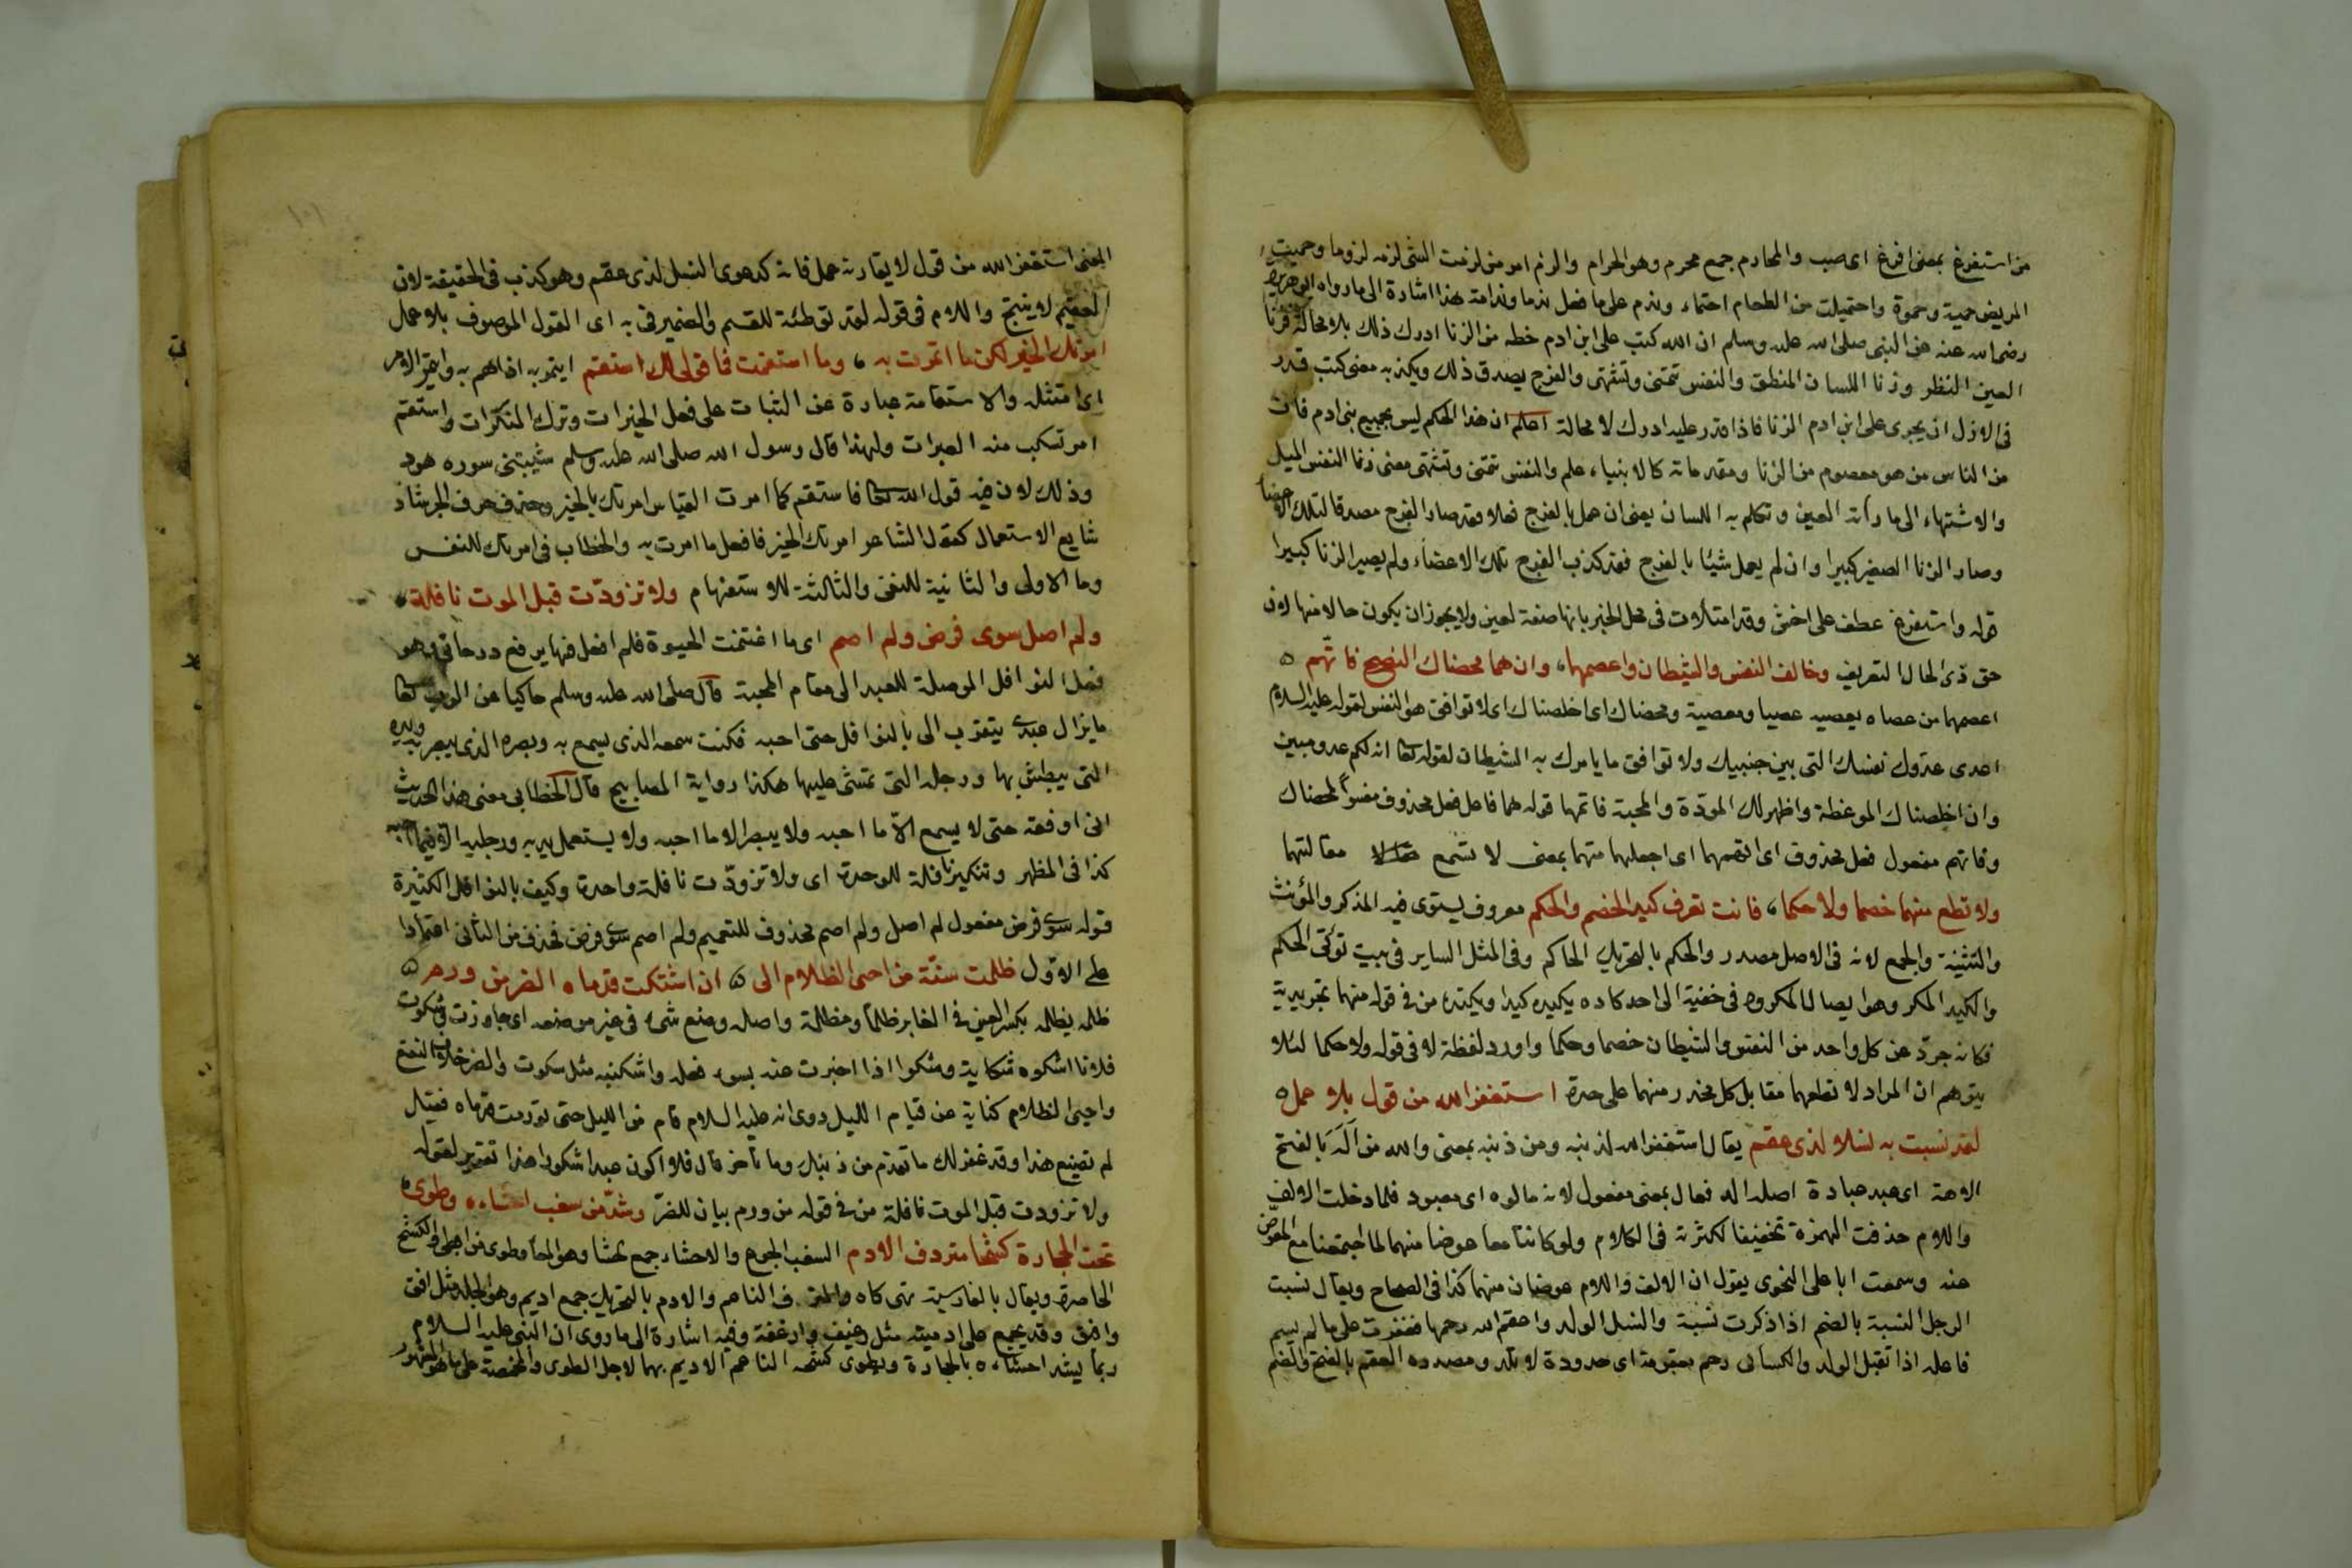 من استفرغ بمعنى افرغ اى صب والمحارم جمع محرم وهو الحرام والزم امر من لزمت الشئ لزمه لزوما وحميت
المريض حمية وحموة واحتميت من الطعام احتماء وندم على ما فعل ندما وندامة هذا اشارة الى ما رواه ابو هريرة
رضى الله عنه عن النبى صلى الله عليه وسلم ان الله كتب على ابن ادم حظه من الزنا ادرك ذلك بلا محالة فزنا
العين النظر وزنا اللسان المنطق والنفس تمنى وتشتهى والفرج يصدق ذلك ويكذبه معنى كتب قدر
فى الازل ان يجرى على ابن ادم الزنا فاذا قدر عليه ادرك لا محالة اعلم ان هذا الحكم ليس بجميع بنى ادم فان
من الناس من هو معصوم من الزنا ومقدماته كالانبياء علم والنفس تمنى وتشتهى معنى زنا النفس الميل
والاشتهاء الى ما رأته العين وتكلم به اللسان يعنى ان عمل بالفرج فعلا فقد صار الفرج مصدقا لتلك الاعضا
وصار الزنا الصغير كبيرا وان لم يعمل شيئا بالفرج فقد كذب الفرج تلك الاعضاء ولم يصير الزنا كبيرا
قوله واستفرغ عطف على اخش وقد امتلأت فى محل الجر بانها صفة لعين ولا يجوز ان يكون حالا منها لان
حق ذى الحال التعريف وخالف النفس والشيطان واعصهما، وان هما محضاك النصح فاتّهم ٥
اعصهما من عصاه يعصيه عصيا ومعصية ومحضاك اى اخلصناك اى لا توافق هو النفس لقوله عليه السلام
اعدى عدوك نفسك التى بين جنبيك ولا توافق ما يامرك به الشيطان لقوله تعا انه لكم عدو مبين
وان اخلصناك الموعظة واظهر لك المودّة والمحبة فاتهما قوله هما فاعل فعل محذوف مفسراً لمحضاك
وفاتهم مفعول فعل محذوف اى اتهمهما اى اجعلهما متهما بمعنى لا تسمع مقالتهما
ولا تطع منهما خصما ولا حكما، فانت تعرف كيد الخصم والحكم معروف يستوى فيه المذكر والمؤنث
والتثنية والجمع لانه فى الاصل مصدر والحكم بالتحريك الحاكم وفى المثل الساير فى بيته تؤتى الحكم
والكيد المكر وهو ايصال المكروه فى خفية الى احد كاده يكيده كيدا ويكتد، من فى قوله منهما تجريدية
فكانه جرّد عن كل واحد من النفس والشيطان خصما وحكما واورد لفظة لا فى قوله ولا حكما لئلا
يتوهم ان المراد لا تطعهما مقابل كل منهما على حدة استغفر الله من قول بلا عمل ٥
لقد نسبت به نسلا لذى عقم يقال استغفر الله لذنبه ومن ذنبه بمعنى والله من اَلَهَ بالفتح
الاهة اى عبد عبادة اصله اله فعال بمعنى مفعول لانه مالوه اى معبود فلما دخلت الالف
واللام حذفت الهمزة تخفيفا لكثرته فى الكلام ولو كانتا معا عوضا منهما لما اجتمعتا مع المعوّض
عنه وسمعت ابا على النحوى يقول ان الالف واللام عوضان منهما كذا فى الصحاح ويقال نسبت
الرجل النسبة بالضم اذا ذكرت نسبة والنسل الولد واعقم الله رحمها فعقرت على ما لم يسم
فاعله اذا تقبل الولد والكسائى رحم معقومة اى مسدودة لا تلد ومصدره العقم بالفتح والضم
١٠١
المعنى استغفر الله من قول لا يقارنه عمل فانه كدعوى النسل لذى عقم وهو كذب فى الحقيقة لان
العقيم لا ينتج واللام فى قوله لقد توطئة للقسم والضمير فى به اى القول الموصوف بلا عمل
امرتك الخير لكن ما ائتمرت به، وما استقمت فما قولى لك استقم ايتمر به اذا هم به وايتمر الامر
اى امتثله والاستقامة عبارة عن الثبات على فعل الخيرات وترك المنكرات واستقم
امر تسكب منه العبرات ولهذا قال رسول الله صلى الله عليه وسلم شيبتنى سوره هود
وذلك لان فيه قول الله تعا فاستقم كما امرت القياس امرتك بالخير وحذف حرف الجر شاذ
شايع الاستعمال كقول الشاعر امرتك الخير فافعل ما امرت به والخطاب فى امرتك للنفس
وما الاولى والثانية للنفى والثالثة للاستفهام ولا تزوّدت قبل الموت نافلة،
ولم اصل سوى فرض ولم اصم اى ما اغتنمت الحيوة فلم افعل فيها يرفع درجاتى وهو
فعل النوافل الموصلة للعبد الى مقام المحبة قال صلى الله عليه وسلم حاكيا عن الرب تعا
ما يزال عبدى يتقرب الى بالنوافل حتى احبه فكنت سمعه الذى يسمع به وبصره الذى يبصر به ويده
التى يبطش بها ورجله التى تمشى عليها هكذا رواية المصابيح قال الخطابى معنى هذا الحديث
انى اوفقه حتى لا يسمع الاّ ما احبه ولا يبصر الا ما احبه ولا يستعمل يديه ورجليه الا فيما احبه
كذا فى المظهر وتنكير نافلة للوحدة اى ولا تزوّدت نافلة واحدة وكيف بالنوافل الكثيرة
قوله سوى فرض مفعول لم اصل ولم اصم محذوف للتعميم ولم اصم سوى فرض فحذف من الثانى اعتمادا
على الاوّل ظلمت سنّة من احيى الظلام الى ٥ ان اشتكت قدماه الضر من ورم ٥
ظلمه يظلمه بكسر العين فى الغابر ظلماً ومظلمة واصله وضع شىء فى غير موضعه اى جاوزت وشكوت
فلانا اشكوه شكاية وشكوا اذا اخبرت عنه بسوء فعله واشكنيه مثل سكوت والضر خلاف النفع
واحيى الظلام كناية عن قيام الليل روى انه عليه السلام قام من الليل حتى تورمت قدماه فقيل
لم تصنع هذا وقد غفر لك ما تقدم من ذنبك وما تأخر قال افلا اكون عبدا شكورا هذا تقرير لقوله
ولا تزودت قبل الموت نافلة من فى قوله من ورم بيان للضرّ وشدّ من سغب احشاءه وطوى،
تحت الحجارة كشحا مترف الادم السغب الجوع والاحشاء جمع حشا وهو المعا وطوى من الطى والكشح
الخاصرة ويقال بالفارسية تهى كاه والمترف الناعم والادم بالتحريك جمع اديم وهو الجلد مثل افق
وافق وقد يجمع على ادمية مثل رغيف وارغفة وفيه اشارة الى ما روى ان النبى عليه السلام
ربما يشد احشاءه بالحجارة ويطوى كشحه الناعم الاديم بهما لاجل الطوى والمخمصة على ما هو المشهور